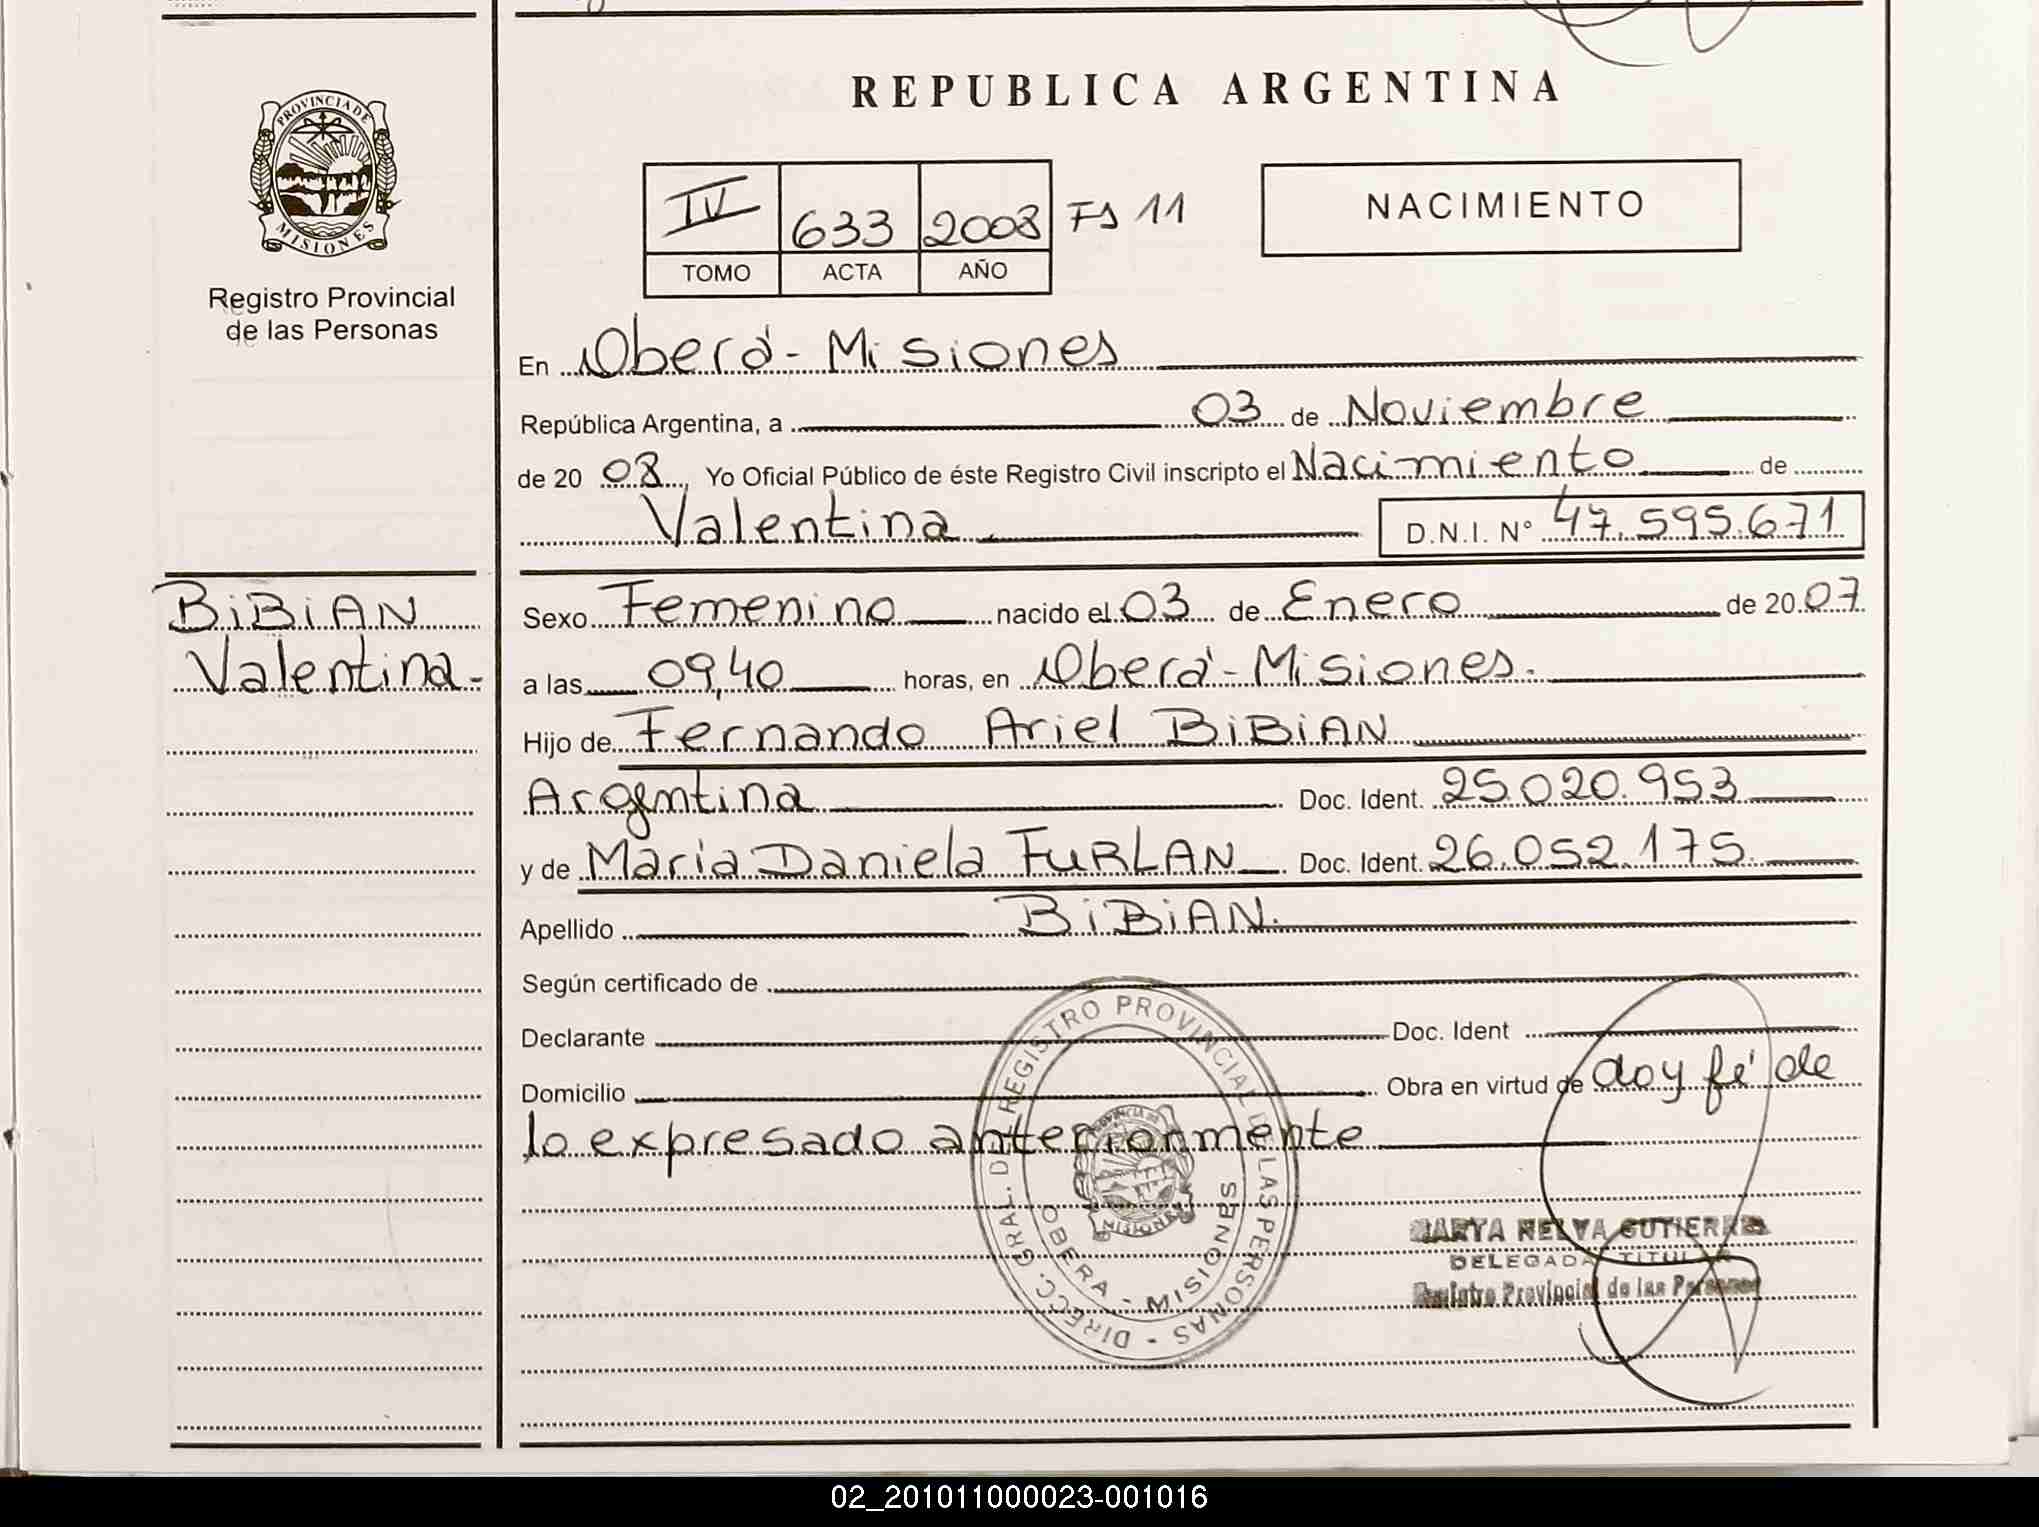 REPUBLICA ARGENTINA
PROVINCIA DE
MISIONES
Registro Provincial
de las Personas
IV 633 2008 Fs 11
TOMO ACTA AÑO
NACIMIENTO
En Oberá - Misiones
República Argentina, a 03 de Noviembre
de 20 08, Yo Oficial Público de éste Registro Civil inscripto el Nacimiento de
Valentina D.N.I. Nº 47.595.671
BiBiAN
Valentina-
Sexo Femenino nacido el 03 de Enero de 20 07
a las 09,40 horas, en Oberá - Misiones.
Hijo de Fernando Ariel BiBiAN
Argentina Doc. Ident. 25.020.953
y de Maria Daniela FURLAN Doc. Ident. 26.052.175
Apellido BiBiAN.
Según certificado de
Declarante Doc. Ident
Domicilio Obra en virtud de doy fé de
lo expresado anteriormente
DIRECC. GRAL. DEL REGISTRO PROVINCIAL DE LAS PERSONAS -
PROVINCIA DE
MISIONES
OBERA - MISIONES
NELVA
DELEGADA TITULAR
Registro Provincial de las Personas
02_201011000023-001016